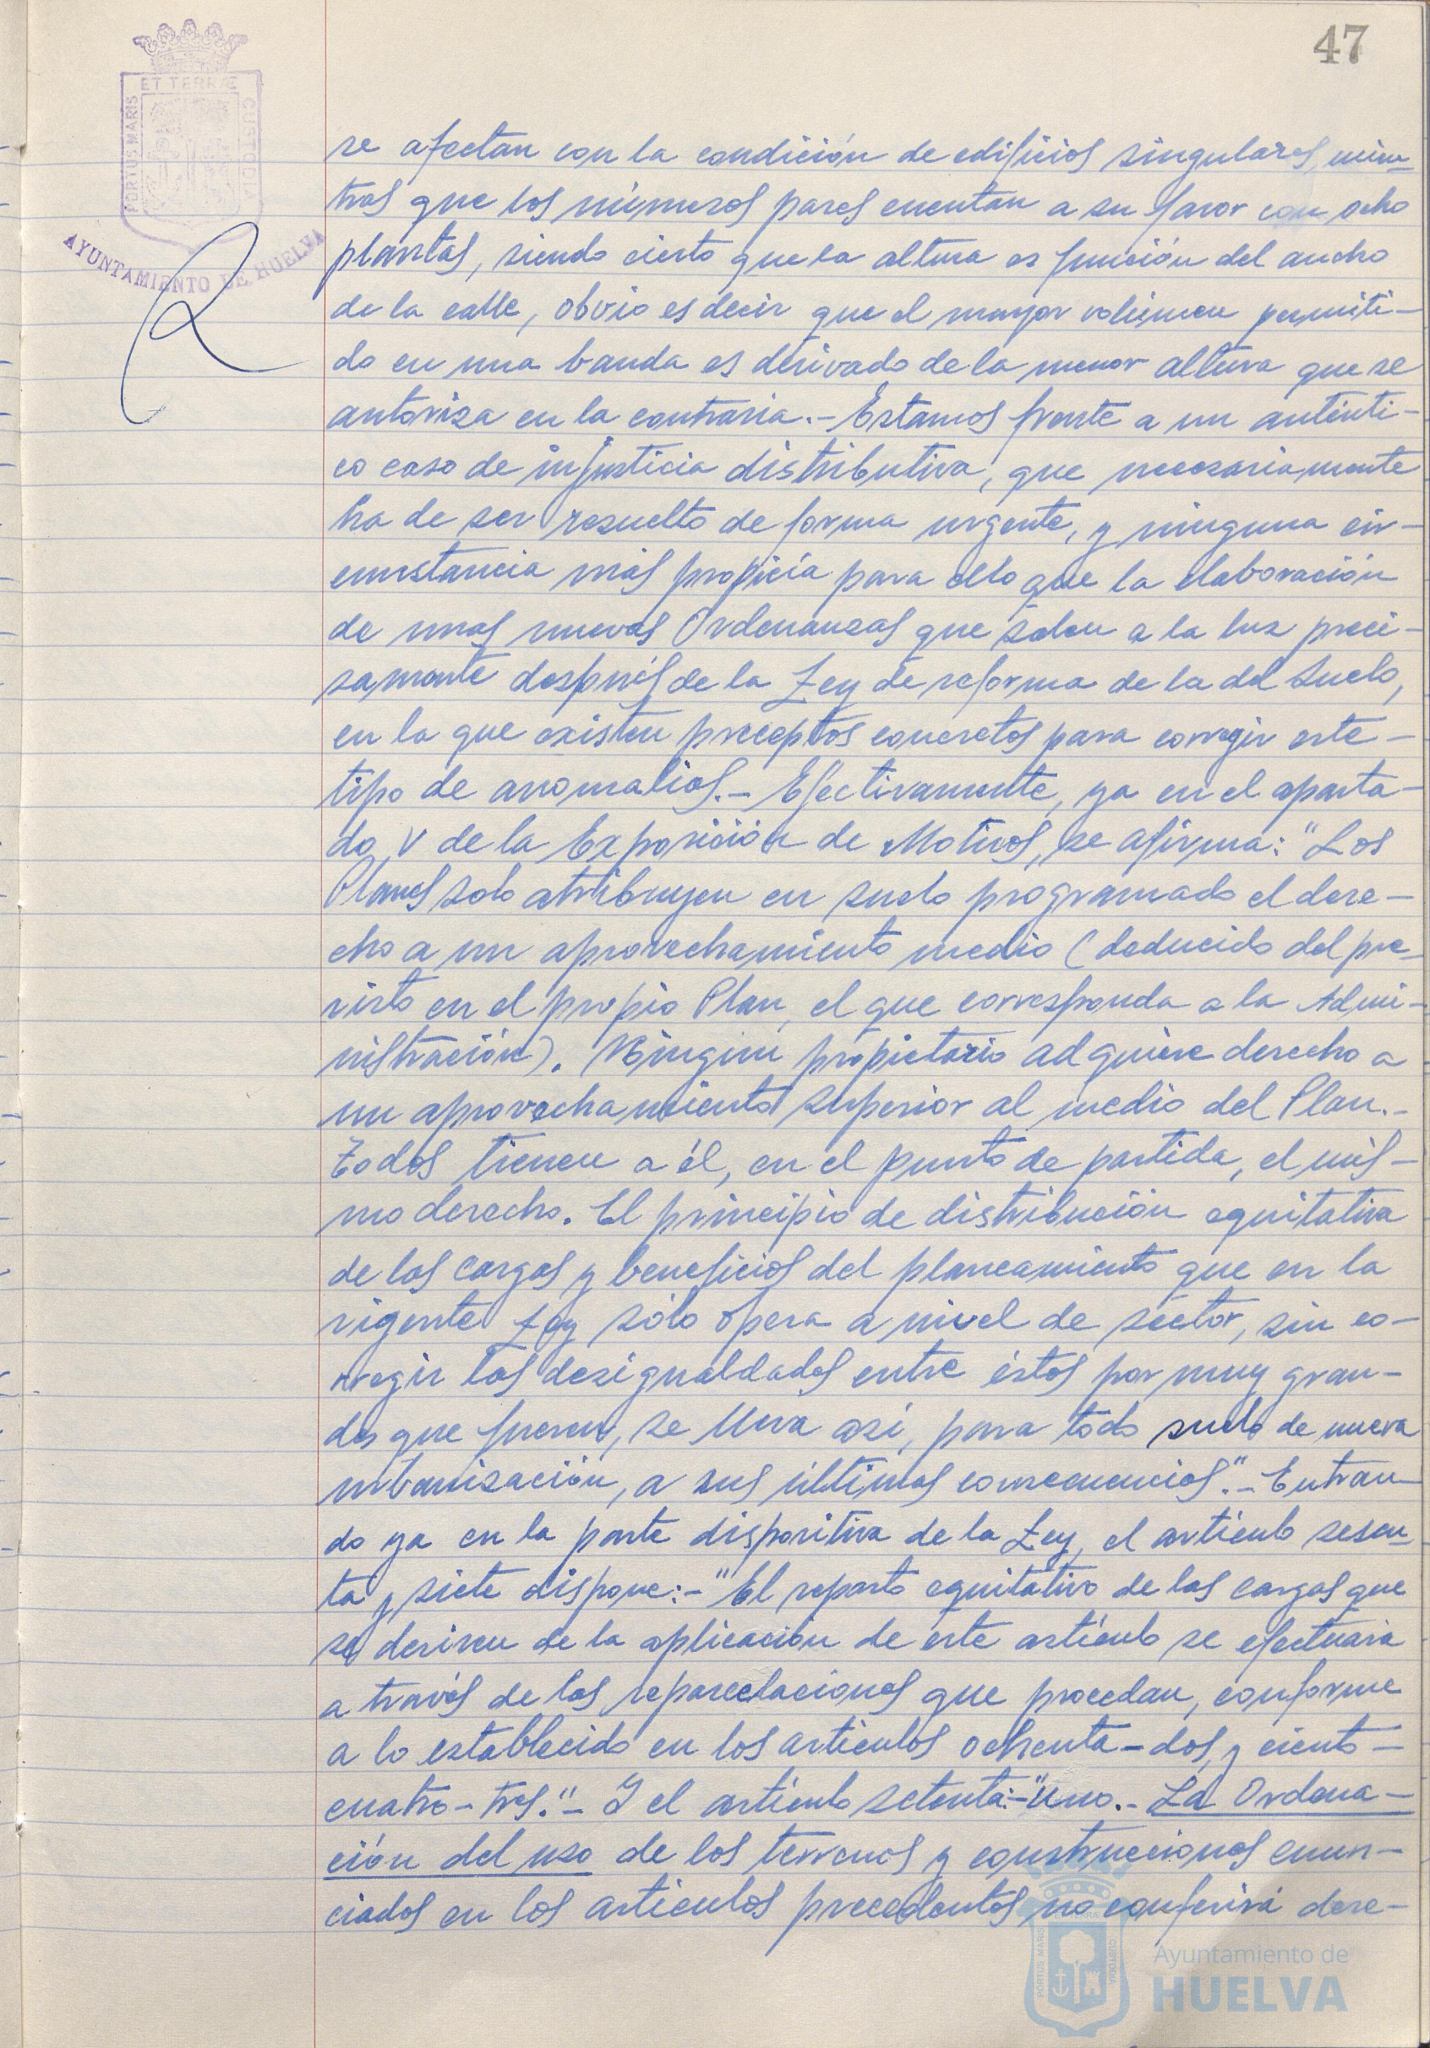 47
ET TERRÆ
PORTUS MARIS
CUSTODIA
AYUNTAMIENTO DE HUELVA
se afectan con la condición de edificios singulares, mien-
tras que los números pares cuentan a su favor con ocho
plantas, siendo cierto que la altura es función del ancho
de la calle, obvio es decir que el mayor volúmen permiti-
do en una banda es derivado de la menor altura que se
autoriza en la contraria.- Estamos frente a un auténti-
co caso de injusticia distributiva, que necesariamente
ha de ser resuelto de forma urgente, y ninguna cir-
cunstancia más propicia para ello que la elaboración
de unas nuevas Ordenanzas que salen a la luz preci-
samente después de la Ley de reforma de la del Suelo,
en la que existen preceptos concretos para corregir este-
tipo de anomalias.- Efectivamente, ya en el aparta-
do V de la Exposición de Motivos, se afirma: "Los
Planes solo atribuyen en suelo programado el dere-
cho a un aprovechamiento medio (deducido del pre-
visto en el propio Plan, el que corresponda a la Admi-
nistración). Ningún propietario adquiere derecho a
un aprovechamiento superior al medio del Plan.-
Todos tienen a él, en el punto de partida, el mis-
mo derecho. El principio de distribución equitativa
de las cargas y beneficios del planeamiento que en la
vigente Ley sólo opera a nivel de sector, sin co-
rregir las desigualdades entre éstos por muy gran-
des que fueren, se lleva asi, para todo suelo de nueva
urbanización, a sus últimas consecuencias".- Entran-
do ya en la parte dispositiva de la Ley, el artículo sesen-
ta y siete dispone:- "El reparto equitativo de las cargas que
se deriven de la aplicación de este artículo se efectuará
a través de las reparcelaciones que procedan, conforme
a lo establecido en los artículos ochenta-dos, y ciento-
cuatro-tres."- Y el artículo setenta:-"Uno.- La Ordena-
ción del uso de los terrenos y construcciones enun-
ciados en los artículos precedentes no conferirá dere-
PORTUS MARIS
CUSTODIA
Ayuntamiento de
HUELVA